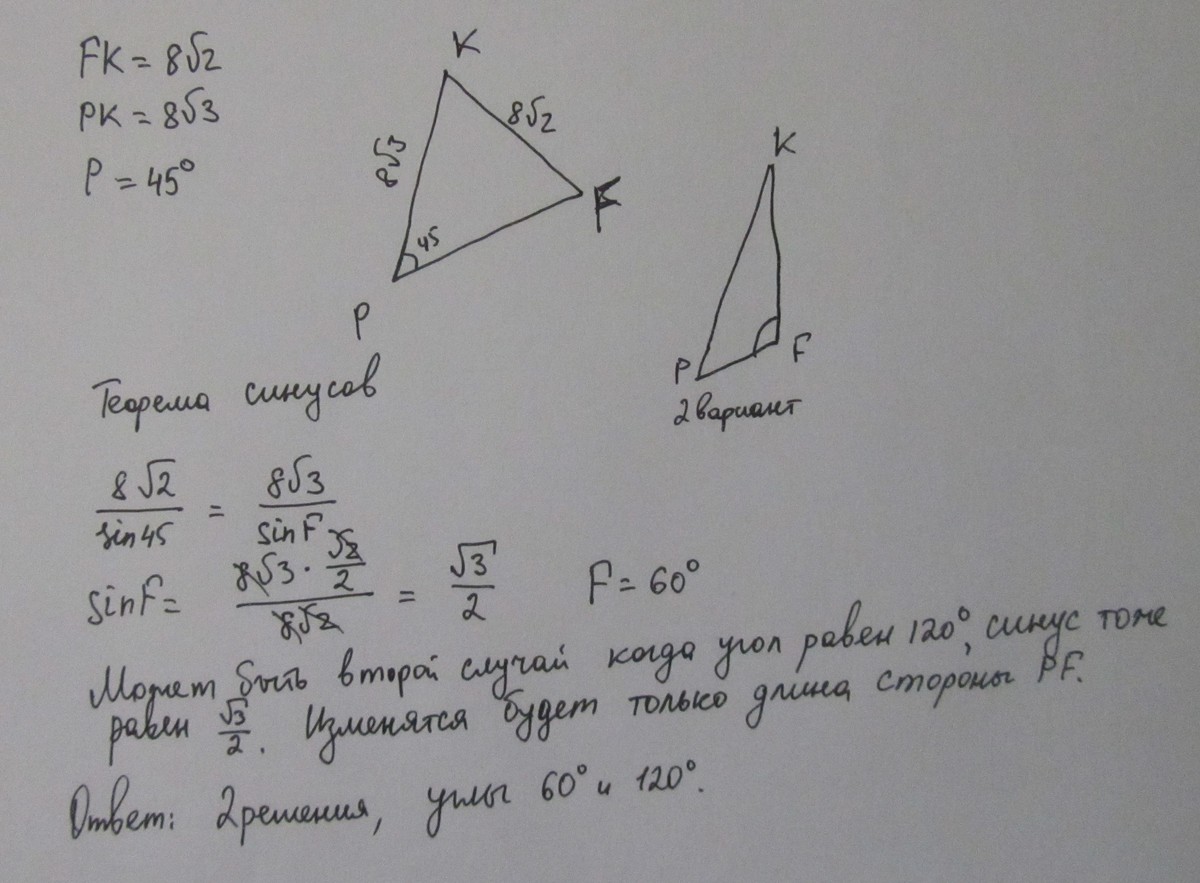 FK = 8√2
PK = 8√3
P = 45°
K
8√3
8√2
45
F
P
K
P
F
2 вариант
Теорема синусов
8√2/sin45 = 8√3/sinF
sinF = 8√3 · √2/2 / 8√2 = √3/2 F = 60°
Может быть второй случай когда угол равен 120°, синус тоже
равен √3/2. Изменятся будет только длина стороны PF.
Ответ: 2 решения, углы 60° и 120°.